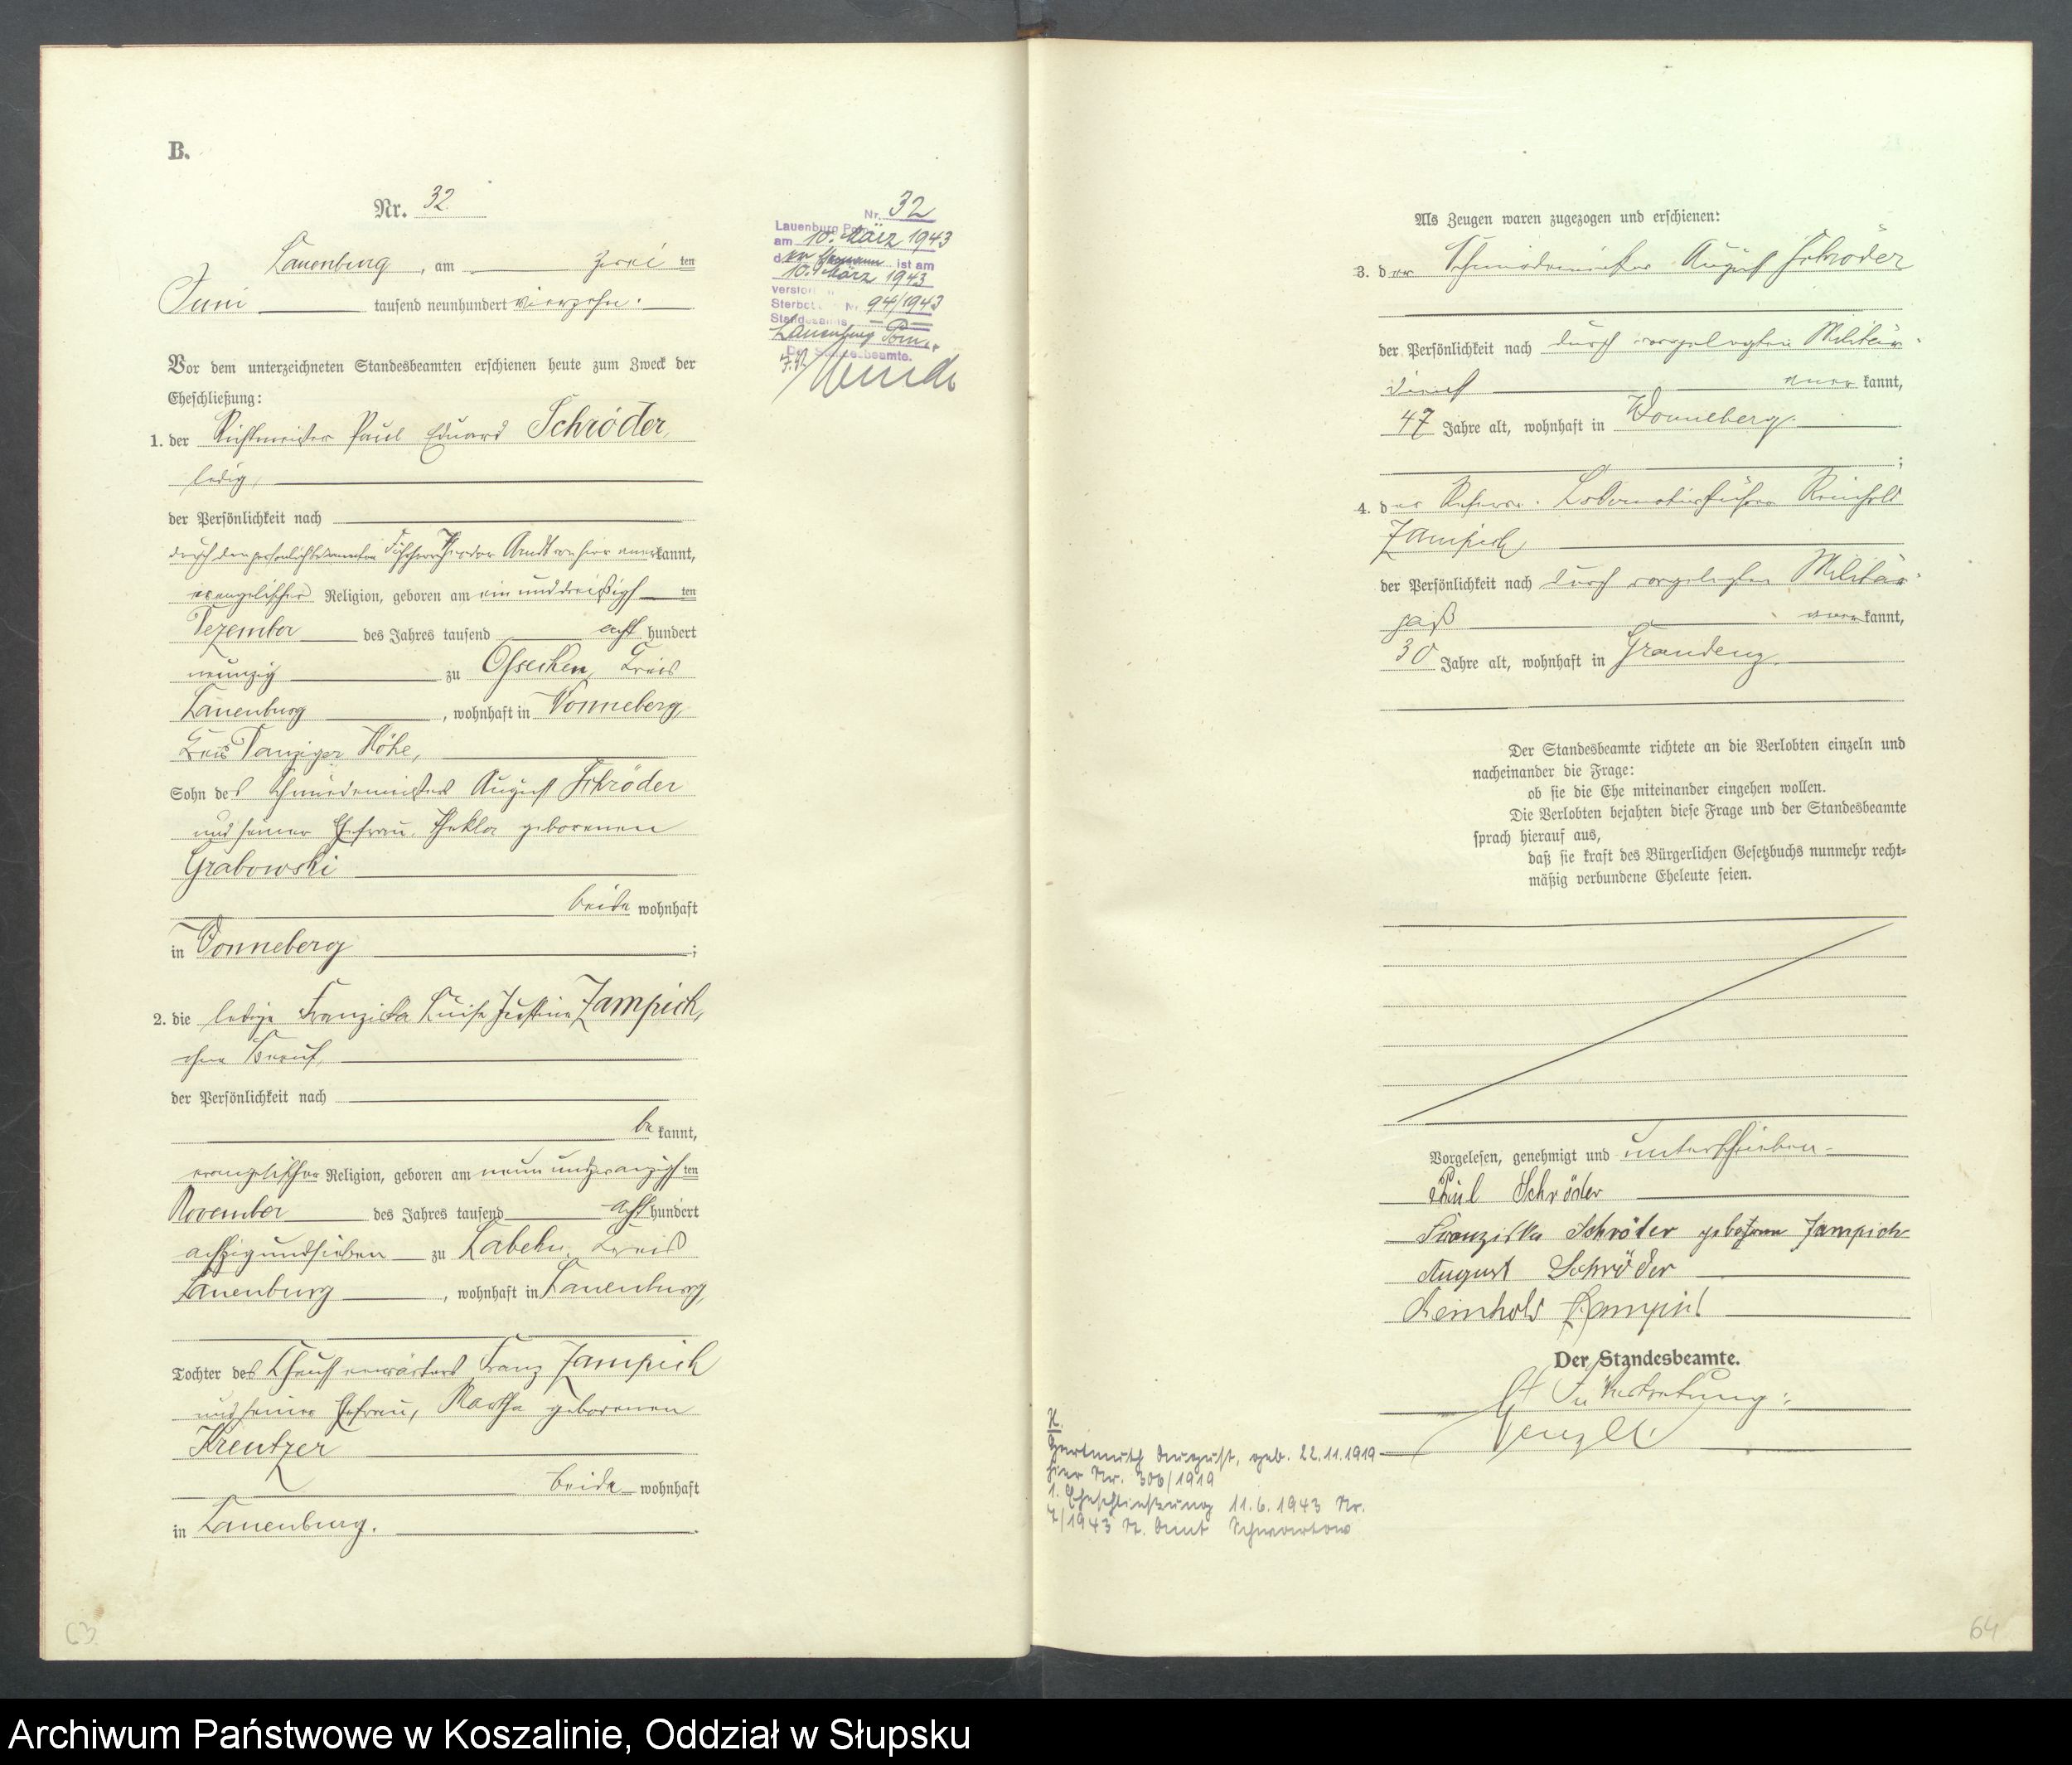 B.
Nr. 32.
Lauenburg, am zwei ten
Juni tausend neunhundert vierzehn.
Vor dem unterzeichneten Standesbeamten erschienen heute zum Zweck der
Eheschließung:
1. der Richtmeister Paul Eduard Schröder,
ledig,
der Persönlichkeit nach
durch den persönlich bekannten Theodor Arndt von hier anerkannt,
evangelischer Religion, geboren am einunddreißigsten
Dezember des Jahres tausend acht hundert
neunzig zu Ossecken, Kreis
Lauenburg, wohnhaft in Wonneberg,
Kreis Danziger Höhe,
Sohn des Schmiedemeisters August Schröder
und seiner Ehefrau, Thekla geborenen
Grabowski
beide wohnhaft
in Wonneberg;
2. die ledige Franziska Luise Justine Zampich,
ohne Beruf,
der Persönlichkeit nach
be kannt,
evangelischer Religion, geboren am neunundzwanzigsten
November des Jahres tausend acht hundert
achtzigundsieben zu Labehn, Kreis
Lauenburg, wohnhaft in Lauenburg,
Tochter des Chausseewärters Franz Zampich
und seiner Ehefrau, Martha geborenen
Kreutzer
beide wohnhaft
in Lauenburg.
Nr. 32
Lauenburg Pom.
am 10. März 1943
der Ehemann ist am
10. März 1943
verstorben
Sterbeb. Nr. 94/1943
Standesamts
Lauenburg Pom.
Der Standesbeamte.
63
Als Zeugen waren zugezogen und erschienen:
3. der Schmiedemeister August Schröder
der Persönlichkeit nach durch vorgelegten Militär-
aner kannt,
47 Jahre alt, wohnhaft in Wonneberg.
;
4. der Reserve-Lokomotivführer Reinhold
Zampich
der Persönlichkeit nach durch vorgelegten Militär-
paß aner kannt,
30 Jahre alt, wohnhaft in Graudenz.
Der Standesbeamte richtete an die Verlobten einzeln und
nacheinander die Frage:
ob sie die Ehe miteinander eingehen wollen.
Die Verlobten bejahten diese Frage und der Standesbeamte
sprach hierauf aus,
daß sie kraft des Bürgerlichen Gesetzbuchs nunmehr recht-
mäßig verbundene Eheleute seien.
Vorgelesen, genehmigt und unterschrieben
Paul Schröder
Franziska Schröder geborene Zampich
August Schröder
Reinhold Zampich
Der Standesbeamte.
In Vertretung:
K.
Hartmuth August, geb. 22.11.1919
hier Nr. 306/1919
1. Eheschließung 11.6.1943 Nr.
7/1943 St. Amt Schwartow
64
Archiwum Państwowe w Koszalinie, Oddział w Słupsku